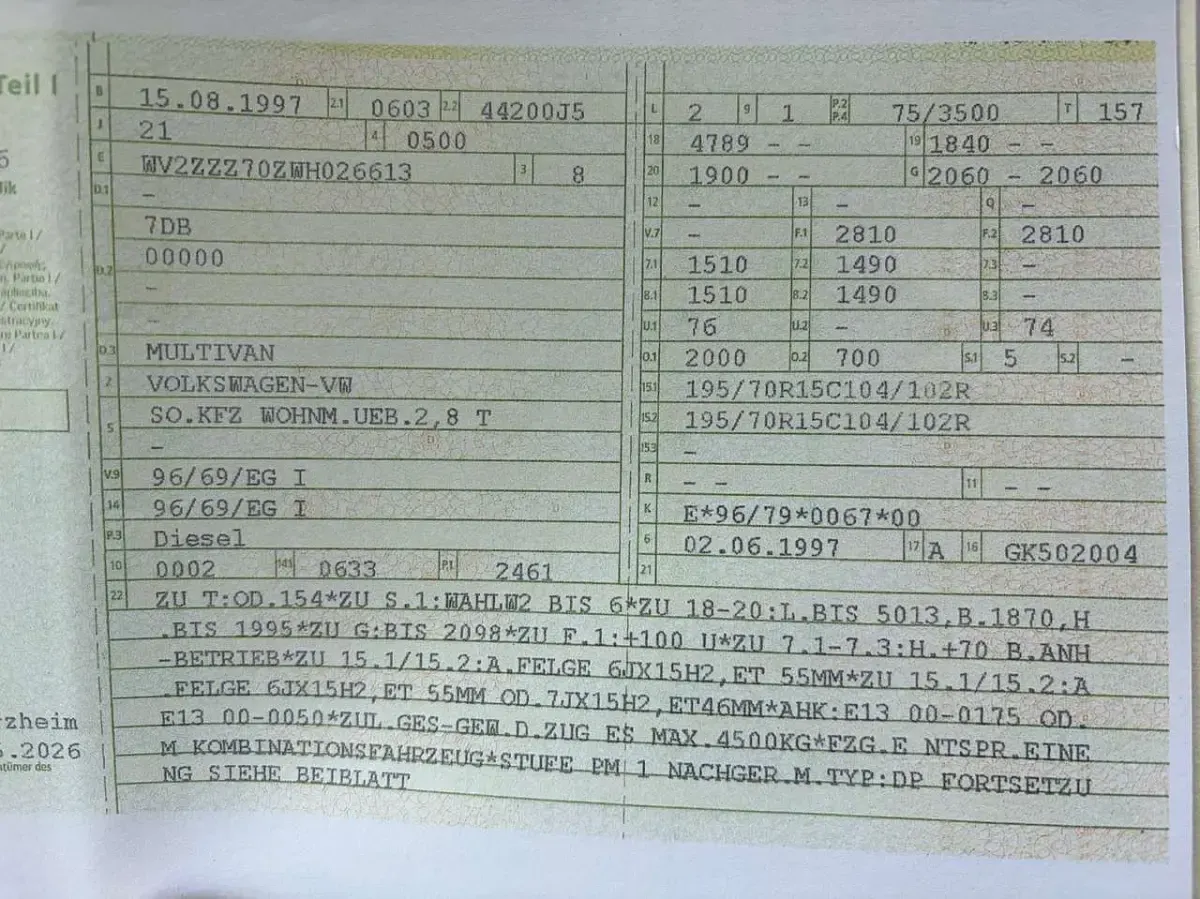 Teil I
B 15.08.1997 2.1 0603 2.2 44200J5
J 21 4 0500
E WV2ZZZ70ZWH026613 3 8
D.1 –
D.2 7DB
00000
–
–
D.3 MULTIVAN
2 VOLKSWAGEN-VW
5 SO.KFZ WOHNM.UEB.2,8 T
–
V.9 96/69/EG I
14 96/69/EG I
P.3 Diesel
10 0002 14.1 0633 P.1 2461
L 2 9 1 P.2 P.4 75/3500 T 157
18 4789 – – 19 1840 – –
20 1900 – – G 2060 – 2060
12 – 13 – Q –
V.7 – F.1 2810 F.2 2810
7.1 1510 7.2 1490 7.3 –
8.1 1510 8.2 1490 8.3 –
U.1 76 U.2 – U.3 74
O.1 2000 O.2 700 S.1 5 S.2 –
15.1 195/70R15C104/102R
15.2 195/70R15C104/102R
15.3 –
R – – 11 – –
K E*96/79*0067*00
6 02.06.1997 17 A 16 GK502004
21
22 ZU T:OD.154*ZU S.1:WAHLW2 BIS 6*ZU 18-20:L.BIS 5013,B.1870,H
.BIS 1995*ZU G:BIS 2098*ZU F.1:+100 U*ZU 7.1-7.3:H.+70 B.ANH
-BETRIEB*ZU 15.1/15.2:A.FELGE 6JX15H2,ET 55MM*ZU 15.1/15.2:A
.FELGE 6JX15H2,ET 55MM OD.7JX15H2,ET46MM*AHK:E13 00-0175 OD.
E13 00-0050*ZUL.GES-GEW.D.ZUG ES MAX.4500KG*FZG.E NTSPR.EINE
M KOMBINATIONSFAHRZEUG*STUFE PM 1 NACHGER.M.TYP:DP FORTSETZU
NG SIEHE BEIBLATT
rzheim
.2026